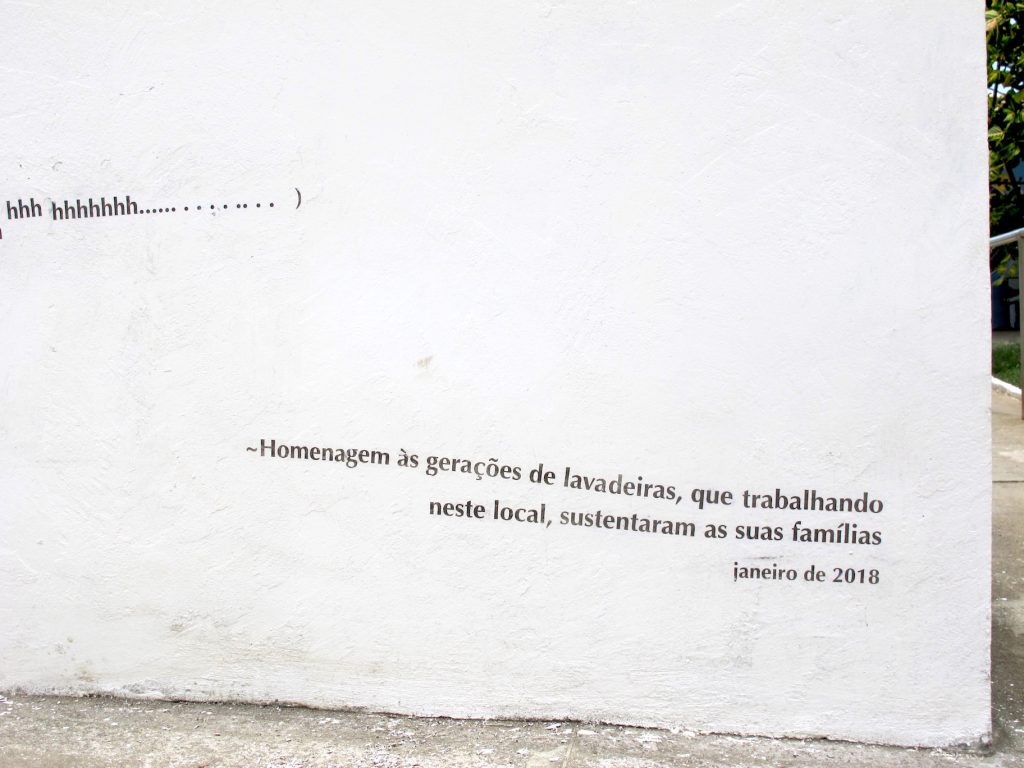 hhh hhhhhhh...... . . . . .. . . )
~Homenagem às gerações de lavadeiras, que trabalhando
neste local, sustentaram as suas famílias
janeiro de 2018